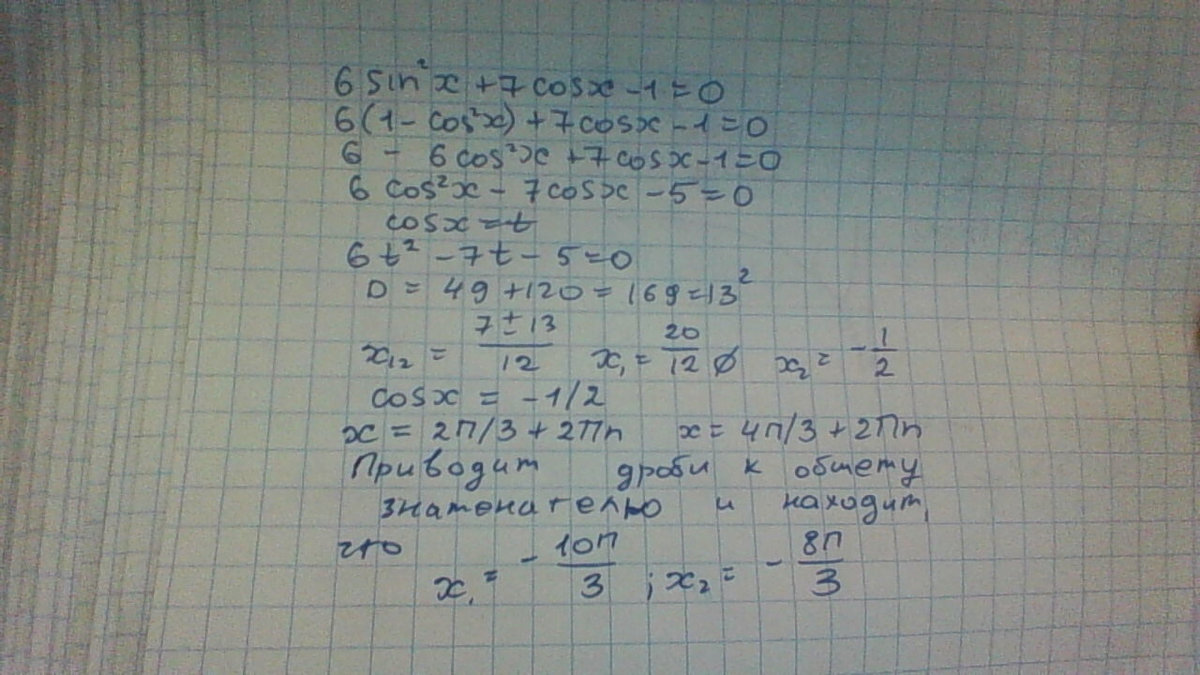 6 sin²x + 7 cosx - 1 = 0
6(1 - cos²x) + 7cosx - 1 = 0
6 - 6cos²x + 7cosx - 1 = 0
6 cos²x - 7cosx - 5 = 0
cosx = t
6t² - 7t - 5 = 0
D = 49 + 120 = 169 = 13²
x₁₂ = (7 ± 13)/12 x₁ = 20/12 ∅ x₂ = -1/2
cosx = -1/2
x = 2П/3 + 2Пn x = 4П/3 + 2Пn
Приводит дроби к общему
знаменателю и находит,
что x₁ = -10П/3 ; x₂ = -8П/3